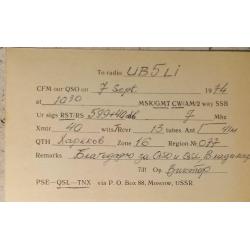 To radio UB5Li
CFM our QSO on 7 Sept. 1974
at 1030 MSK/GMT CW/AM/2 way SSB
Ur sigs RST/RS 599+40db 7 Mhz
Xmtr 40 watts/Rcvr 13 tubes Ant 41м
QTH Харьков Zone 16 Region 077
Remarks Благодарю за QSO и QSL, Владимир
73! Op. Виктор
PSE—QSL—TNX via P. O. Box 88, Moscow, USSR.